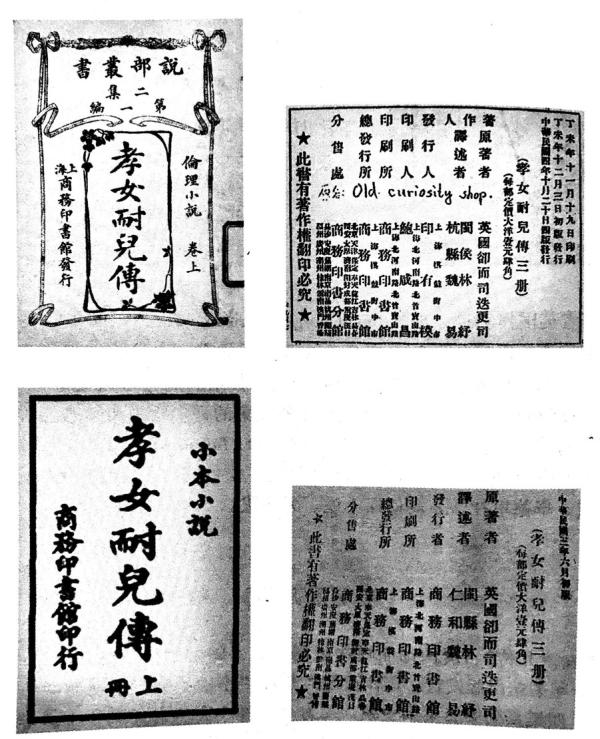 說部叢書
二集
第一編
倫理小說 卷上
孝女耐兒傳
上海商務印書館發行
丁未年十一月十九日印刷
丁未年十二月三日初版發行
中華民國四年十月二十日四版發行
(孝女耐兒傳三册)
(每部定價大洋壹元肆角)
著作人
原著者 英國卻而司迭更司
譯述者 閩侯林紓
杭縣魏易
發行人 印有模
上海棋盤街中市
印刷人 鮑咸昌
上海北河南路北首寶山路
印刷所 商務印書館
上海棋盤街中市
總發行所 商務印書館
分售處 商務印書分館
Old curiosity shop.
★此書有著作權翻印必究★
小本小說
孝女耐兒傳
上册
商務印書館印行
中華民國三年六月初版
(孝女耐兒傳三册)
(每部定價大洋壹元肆角)
原著者 英國卻而司迭更司
譯述者 閩縣林紓
仁和魏易
發行者 商務印書館
上海北河南路北首寶山路
印刷所 商務印書館
上海棋盤街中市
總發行所 商務印書館
分售處 商務印書分館
☆此書有著作權翻印必究★